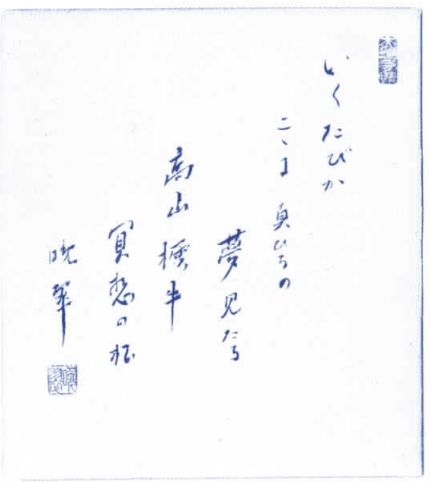 いくたびか
こゝに眞ひるの
夢見たる
高山樗牛
冥想の松
晩翠